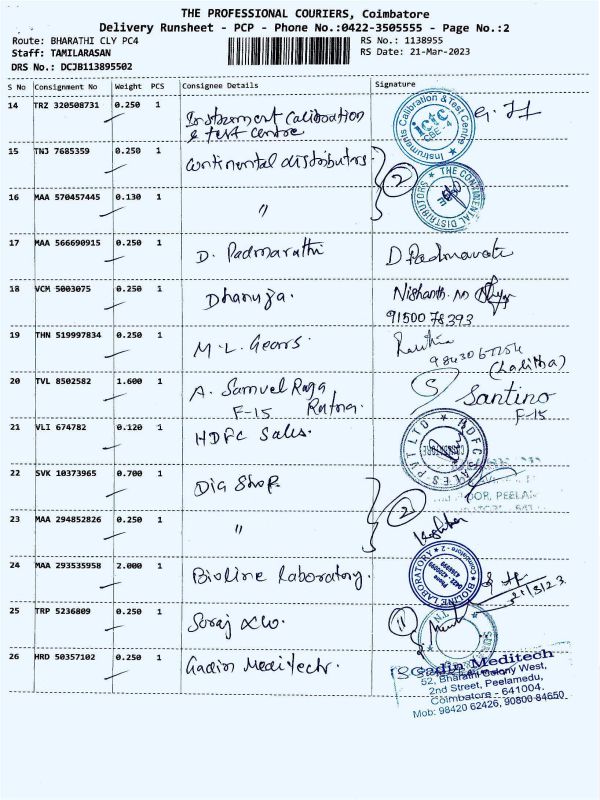 THE PROFESSIONAL COURIERS, Coimbatore
Delivery Runsheet - PCP - Phone No.:0422-3505555 - Page No.:2
Route: BHARATHI CLY PC4
RS No.: 1138955
Staff: TAMILARASAN
RS Date: 21-Mar-2023
DRS No.: DCJB113895502
S No Consignment No Weight PCS Consignee Details Signature
14 TRZ 320508731 0.250 1
Instrument Calibration
& test centre
Instruments Calibration & Test Centre
ictc
CBE - 4
15 TNJ 7685359 0.250 1 Continental distributors
2
16 MAA 570457445 0.130 1 "
THE CONTINENTAL DISTRIBUTORS
17 MAA 566690915 0.250 1 D. Padmarathi D Padmavati
18 VCM 5003075 0.250 1 Dhanuja. Nishanth. M
91500 78393
19 THN 519997834 0.250 1 M. L. Gears.
(Lalitha)
20 TVL 8502582 1.600 1 A. Samuel Raja Santino
F-15 Ratna. F-15
21 VLI 674782 0.120 1 HDFC Sales.
HDFC SALES PVT LTD
COIMBATORE
22 SVK 10373965 0.700 1 Dia Shop
FLOOR, PEELA
2
23 MAA 294852826 0.250 1 "
24 MAA 293535958 2.000 1 Bioline Laboratory.
BIOLINE LABORATORY
Coimbatore - 2
Phone
21/3/23
25 TRP 5236809 0.250 1
11
26 HRD 50357102 0.250 1 Gadin Meditech.
Gadin Meditech
52, Bharathi Colony West,
2nd Street, Peelamedu,
Coimbatore - 641004.
Mob: 98420 62426, 90800 84650